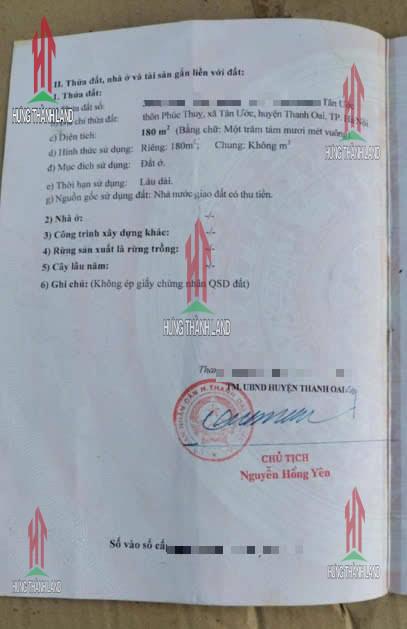 II. Thửa đất, nhà ở và tài sản gắn liền với đất:
1. Thửa đất:
Thửa đất số: Tân Ước
Địa chỉ thửa đất: thôn Phúc Thụy, xã Tân Ước, huyện Thanh Oai, TP. Hà Nội
c) Diện tích: 180 m² (Bằng chữ: Một trăm tám mươi mét vuông)
d) Hình thức sử dụng: Riêng: 180m²; Chung: Không m²
đ) Mục đích sử dụng: Đất ở.
e) Thời hạn sử dụng: Lâu dài.
g) Nguồn gốc sử dụng đất: Nhà nước giao đất có thu tiền.
2) Nhà ở: -/-
3) Công trình xây dựng khác: -/-
4) Rừng sản xuất là rừng trồng: -/-
5) Cây lâu năm: -/-
6) Ghi chú: (Không ép giấy chứng nhận QSD đất)
TM. UBND HUYỆN THANH OAI
CHỦ TỊCH
Nguyễn Hồng Yên
Số vào sổ cấ
HƯNG THỊNH LAND
HƯNG THỊNH LAND
HƯNG THỊNH LAND
HƯNG THỊNH LAND
HƯNG THỊNH LAND